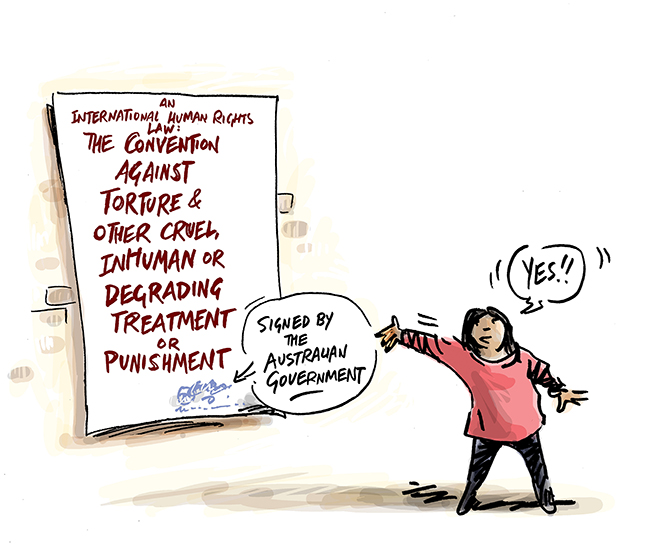 AN
INTERNATIONAL HUMAN RIGHTS
LAW:
THE CONVENTION
AGAINST
TORTURE &
OTHER CRUEL,
INHUMAN OR
DEGRADING
TREATMENT
OR
PUNISHMENT
SIGNED BY
THE
AUSTRALIAN
GOVERNMENT
YES!!